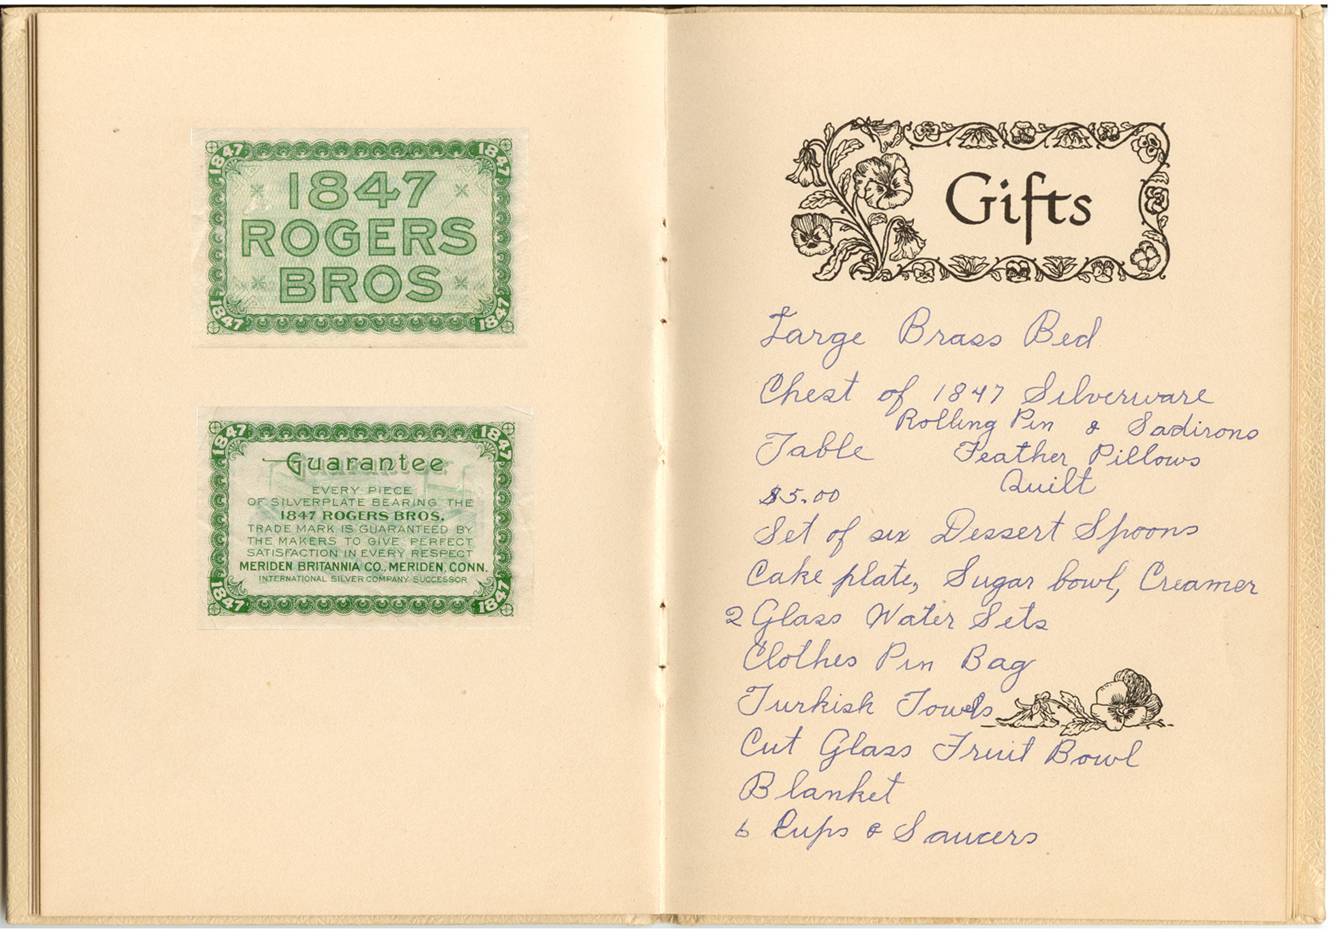 1847
1847
1847
ROGERS
BROS
1847
1847
1847
1847
Guarantee
EVERY PIECE
OF SILVERPLATE BEARING THE
1847 ROGERS BROS.
TRADE MARK IS GUARANTEED BY
THE MAKERS TO GIVE PERFECT
SATISFACTION IN EVERY RESPECT
MERIDEN BRITANNIA CO., MERIDEN, CONN.
INTERNATIONAL SILVER COMPANY SUCCESSOR
1847
1847
Gifts
Large Brass Bed
Chest of 1847 Silverware
Rolling Pin & Sadirons
Table Feather Pillows
Quilt
$5.00
Set of six Dessert Spoons
Cake plate, Sugar bowl, Creamer
2 Glass Water Sets
Clothes Pin Bag
Turkish Towels
Cut Glass Fruit Bowl
Blanket
6 Cups & Saucers